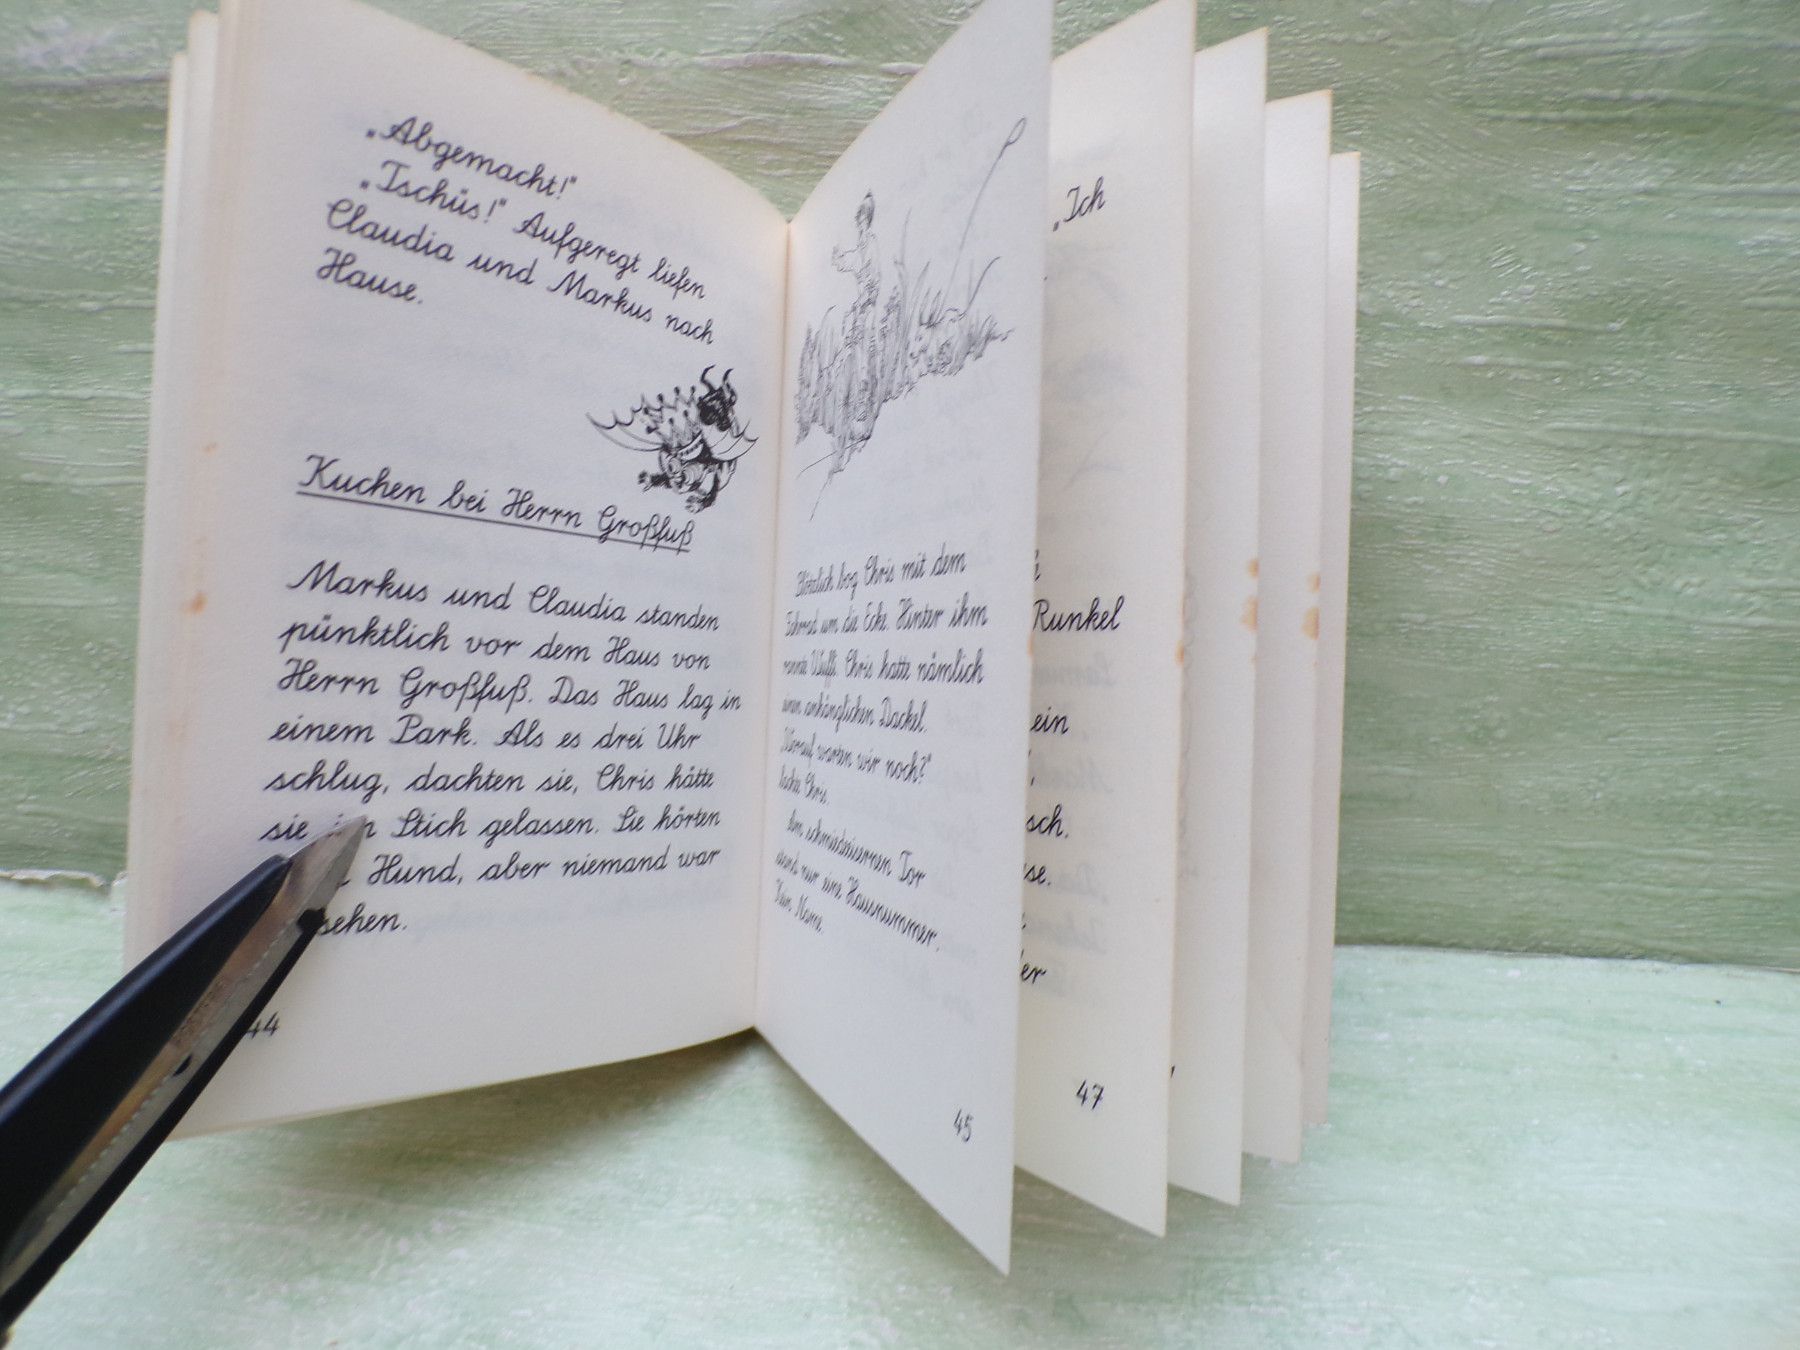 „Abgemacht!"
„Tschüs!" Aufgeregt liefen
Claudia und Markus nach
Hause.
Kuchen bei Herrn Großfuß
Markus und Claudia standen
pünktlich vor dem Haus von
Herrn Großfuß. Das Haus lag in
einem Park. Als es drei Uhr
schlug, dachten sie, Chris hätte
sie Stich gelassen. Sie hörten
Hund, aber niemand war
sehen.
44
Plötzlich bog Chris mit dem
Fahrrad um die Ecke. Hinter ihm
rannte Wuffi. Chris hatte nämlich
einen anhänglichen Dackel.
Worauf warten wir noch?"
Chris.
Am schmiedeeisernen Tor
stand nur eine Hausnummer.
Kein Name.
45
„Ich
Runkel
ein
sch.
se.
er
47